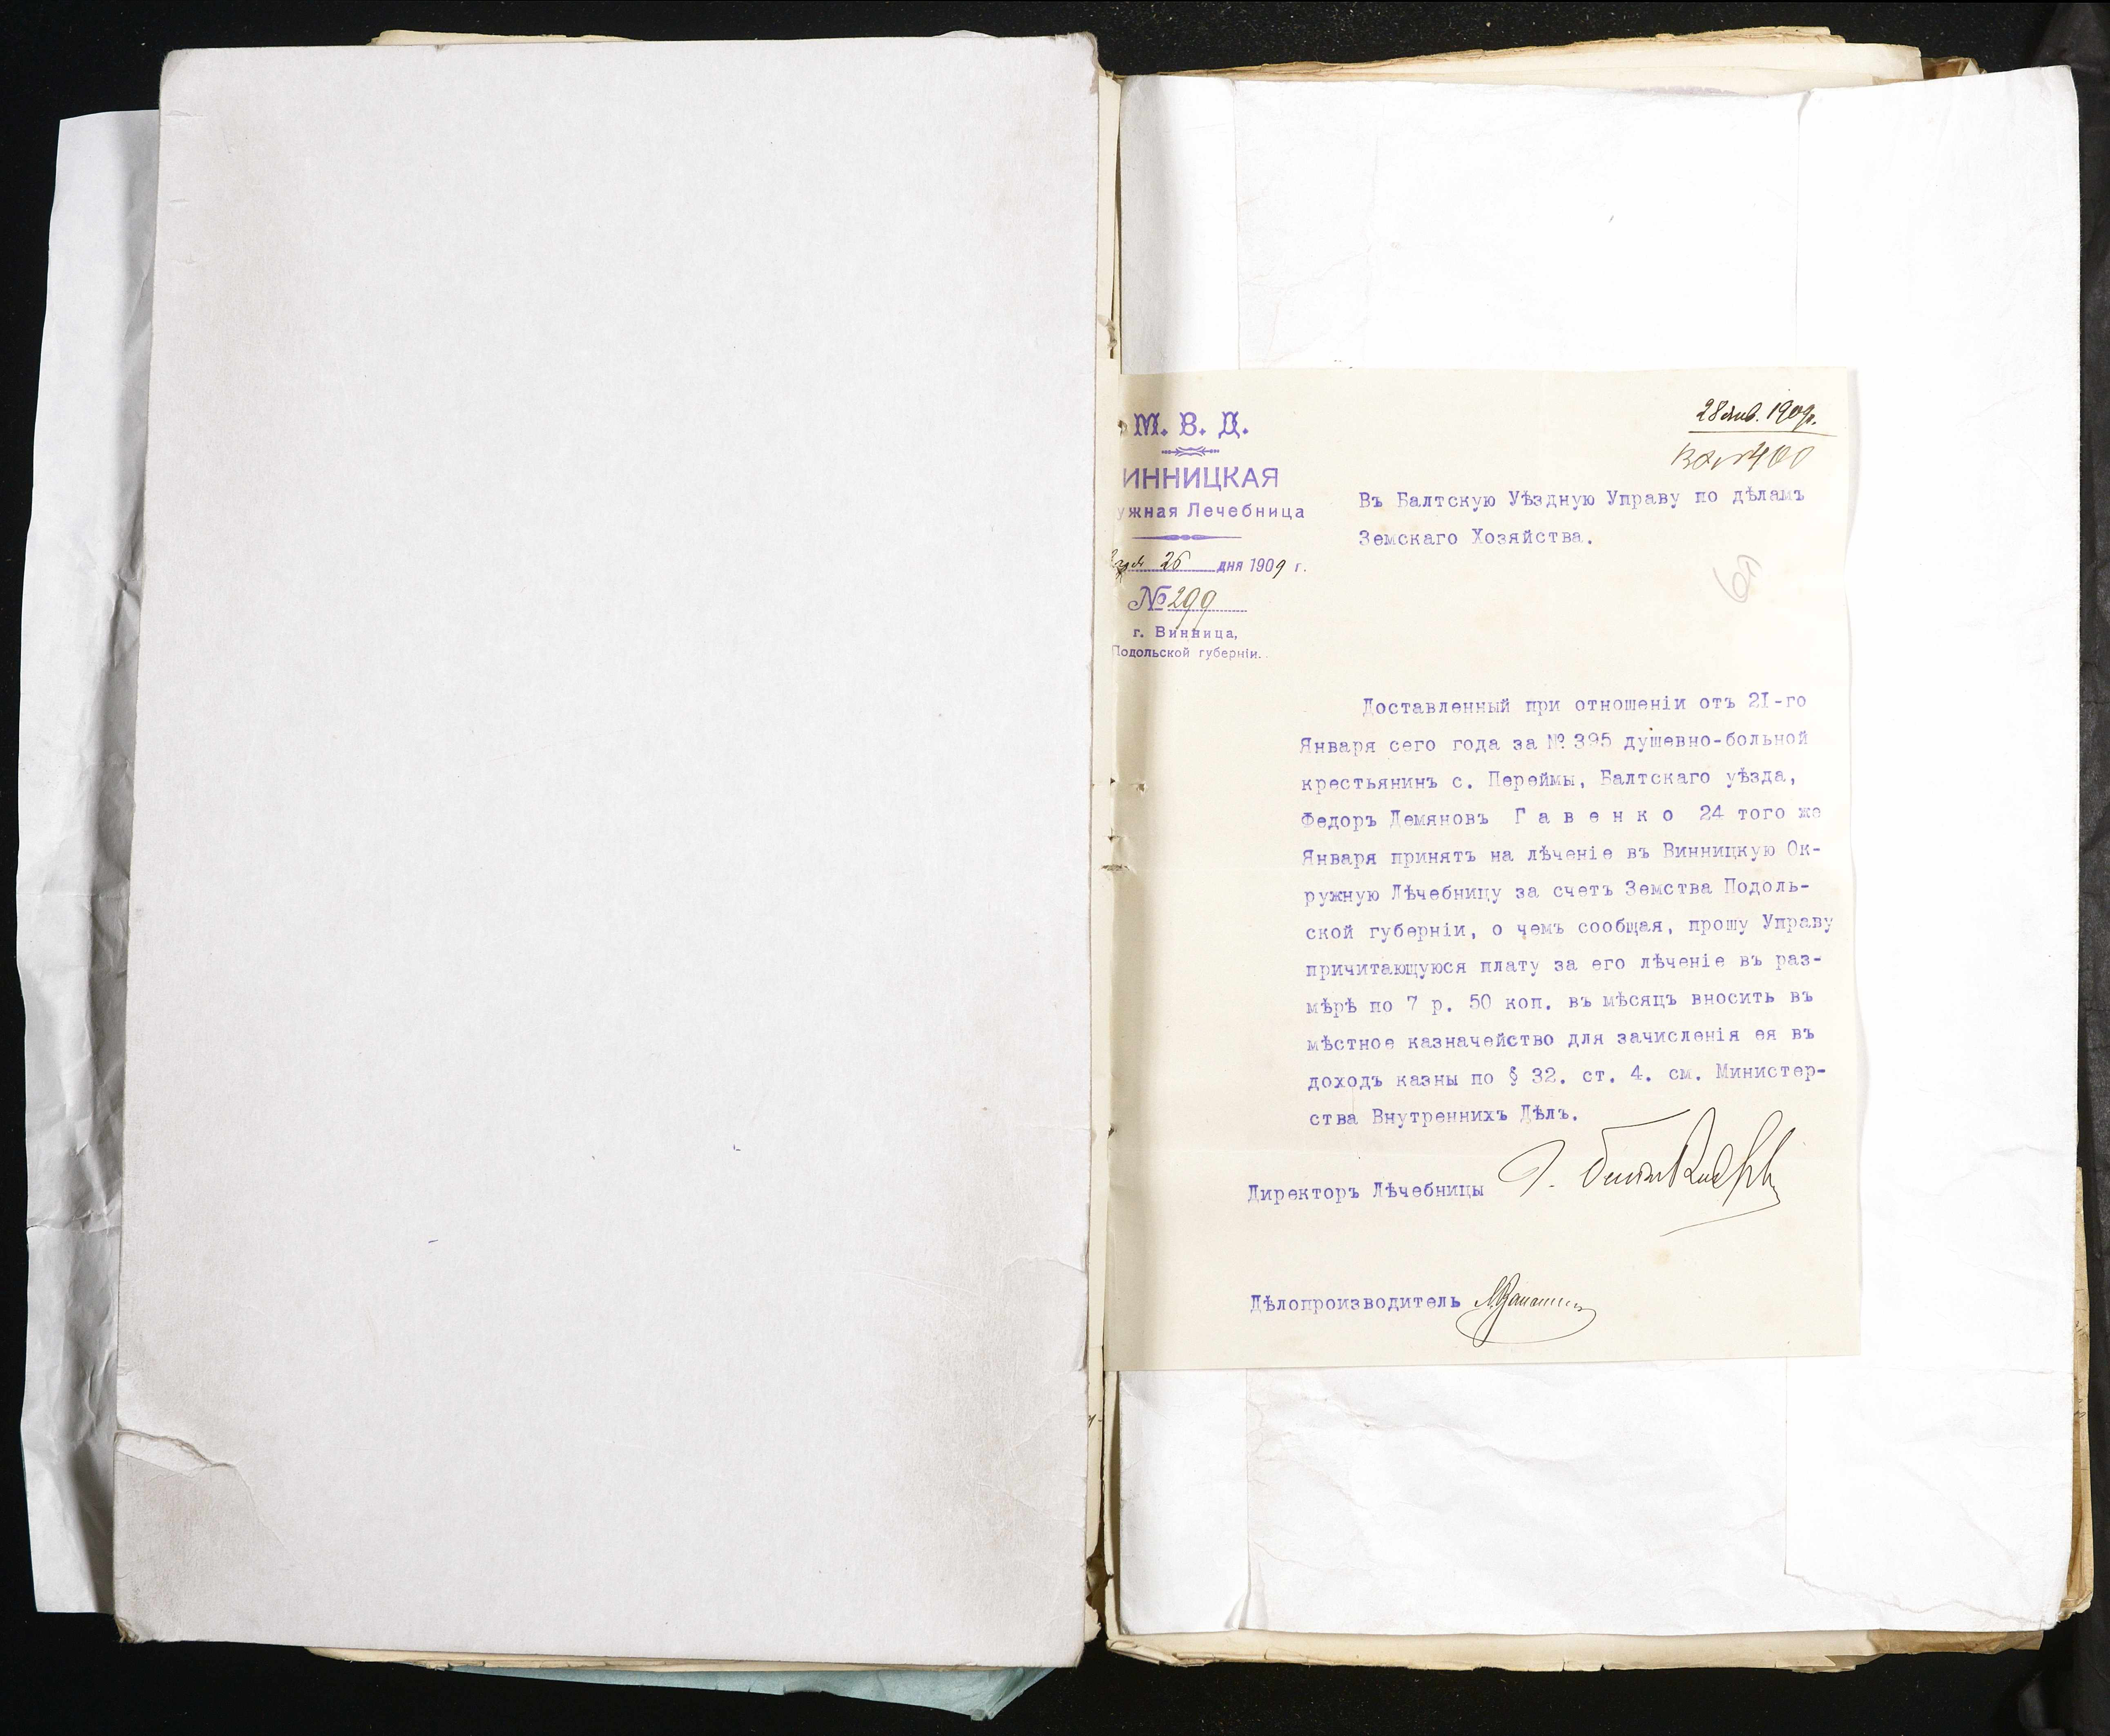 М. В. Д.
ИННИЦКАЯ
ужная Лечебница
26 дня 1909 г.
№ 299
г. Винница,
Подольской губерніи.
28 янв. 1909 г.
Вх №400
Въ Балтскую Уѣздную Управу по дѣламъ
Земскаго Хозяйства.
Доставленный при отношеніи отъ 2I-го
Января сего года за № 395 душевно-больной
крестьянинъ с. Переймы, Балтскаго уѣзда,
Федоръ Демяновъ Г а в е н к о 24 того же
Января принятъ на лѣченіе въ Винницкую Ок-
ружную Лѣчебницу за счетъ Земства Подоль-
ской губерніи, о чемъ сообщая, прошу Управу
причитающуюся плату за его лѣченіе въ раз-
мѣрѣ по 7 р. 50 коп. въ мѣсяцъ вносить въ
мѣстное казначейство для зачисленія ея въ
доходъ казны по § 32. ст. 4. см. Министер-
ства Внутреннихъ Дѣлъ.
Директоръ Лѣчебницы
Дѣлопроизводитель